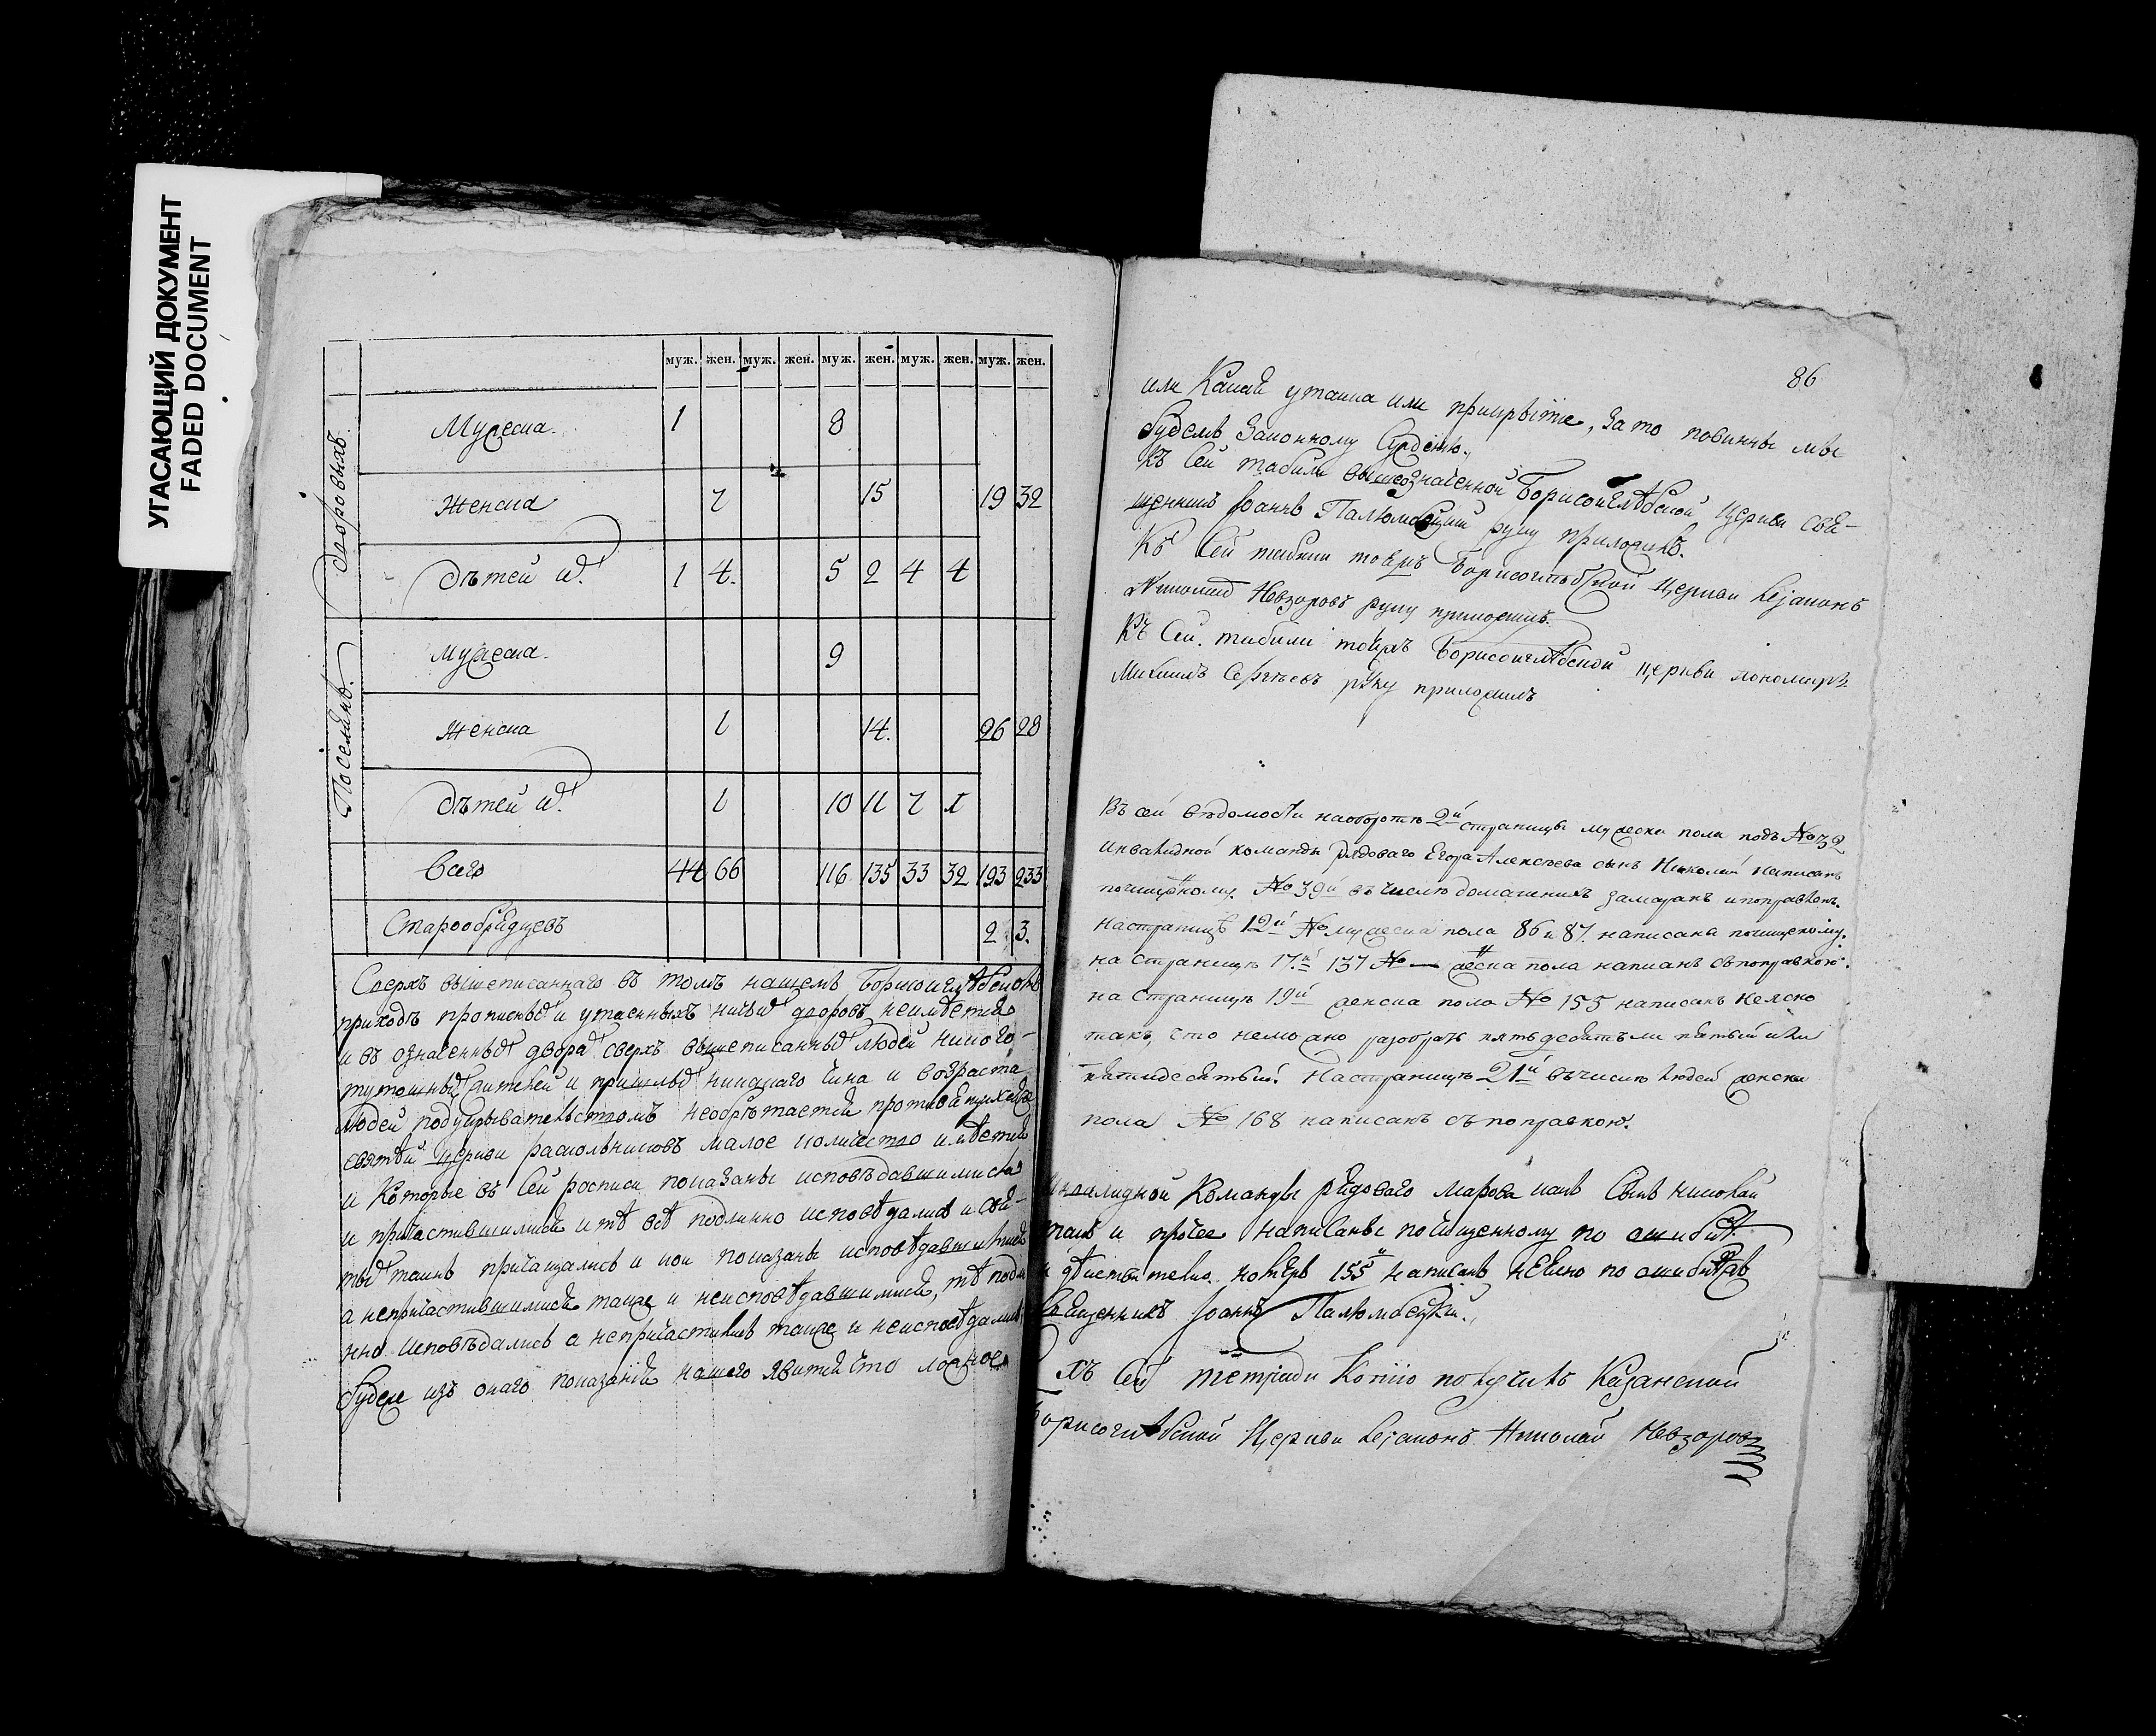 УГАСАЮЩИЙ ДОКУМЕНТ
FADED DOCUMENT
муж. жен. муж. жен. муж. жен. муж. жен. муж. жен.
дворовыхъ.
Мужеска. 1 8
Женска 7 15 19 32
дѣтей их. 1 4. 5 2 4 4
Поселянъ.
мужеска. 9
Женска 1 14. 26 28
дѣтей их. 1 10 11 7 1
Всего 44 66 116 135 33 32 193 233
Старообрядцевъ 2 3.
Сверхъ вышеписаннаго въ томъ нашемъ Борисоглѣбскомъ
приходѣ прописных и утаенныхъ ничьих дворовъ неимѣется
и въ означенных двора сверхъ вышеписанных людей никого
тутошных жителей и пришлых никакаго чина и возраста
людей подукрывательствомъ необрѣтается противящихся
святѣй церкви раскольниковъ малое количество имѣется
и Которые въ Сей росписи показаны исповѣдавшимися
и причастившимися и тѣ всѣ подлинно исповѣдались и свя-
тых таинъ причащались и кои показаны исповѣдавшимися
а непричастившимися также и неисповѣдавшимися, тѣ подли
нно исповѣдались а непричастились также и неисповѣдались
Буде изъ онаго показанія нашего явится что ложное
86
или Какая утайка или прикрытіе, За то повинны мы
будемъ Законному Сужденію.
Къ Сей табели вышеозначенной Борисоглѣбской Церкви свя-
щенникъ Іоаннъ руку приложилъ.
Къ Сей табели тояжъ Борисоглѣбской Церкви діаконъ
Николай Невзоровъ руку приложилъ.
Къ Сей табели тояжъ Борисоглѣбской церкви пономарь
Михаилъ Сергѣевъ руку приложилъ
Въ сей вѣдомости наоборотѣ 2й страницы мужеска пола подъ № 32
инвалидной команды рядоваго Егора Алексѣева сынъ Николай написанъ
почищеному. № 39й въ числѣ домашнихъ замаранъ и поправленъ.
На страницѣ 12й № мужеска пола 86 и 87. написана почищеному.
на страницѣ 17й 137 № — женска пола написанъ съ поправкою.
на страницѣ 19й женска пола № 155 написанъ неясно
такъ, что неможно разобрать пятьдесятъ ли пятый или
пятидесятый. На страницѣ 21й въ числѣ людей женска
пола № 168 написанъ съ поправкою.
Инвалидной Команды рядоваго Сынъ николай
также и прочее написаны почищенному по ошибкѣ
и дѣйствително номеръ 155й написанъ неясно по ошибкѣ
Священникъ Іоаннъ
Съ Сей тетради Копію получилъ Казанской
Борисоглѣбской Церкви діаконъ Николай Невзоровъ